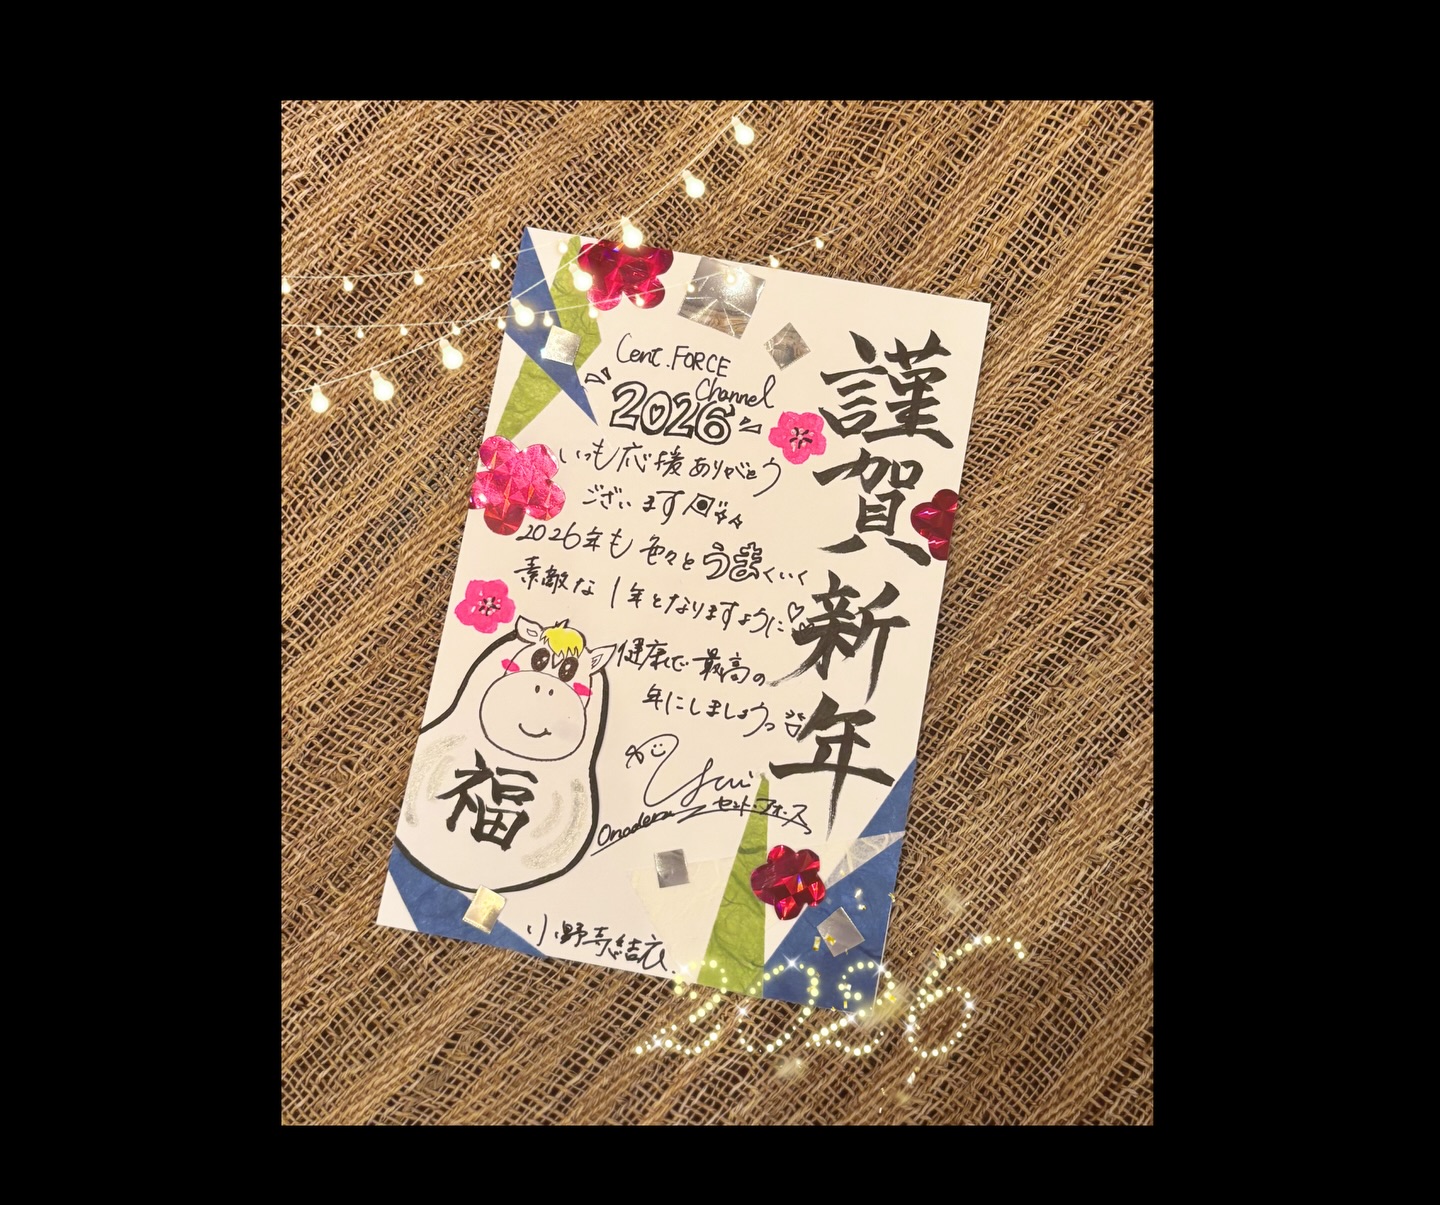 謹賀新年
Cent.FORCE
Channel
2026
いつも応援ありがとう
ございます
2026年も色々とうまくいく
素敵な1年となりますように
健康で最高の
年にしましょう
Yui
セント・フォース
Onodera
福
小野寺結衣
2026